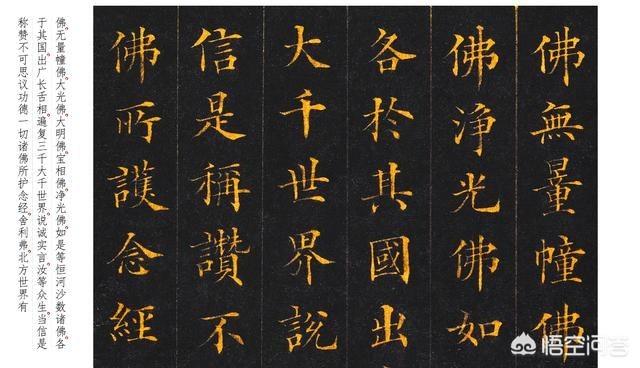 佛無量幢佛
佛淨光佛如
各於其國出
大千世界說
信是稱讚不
佛所護念經
佛。无量幢佛。大光佛。大明佛。宝相佛。净光佛。如是等恒河沙数诸佛。各
于其国。出广长舌相。遍复三千大千世界。说诚实言。汝等众生。当信是
称赞不可思议功德一切诸佛所护念经。舍利弗。北方世界有
悟空问答